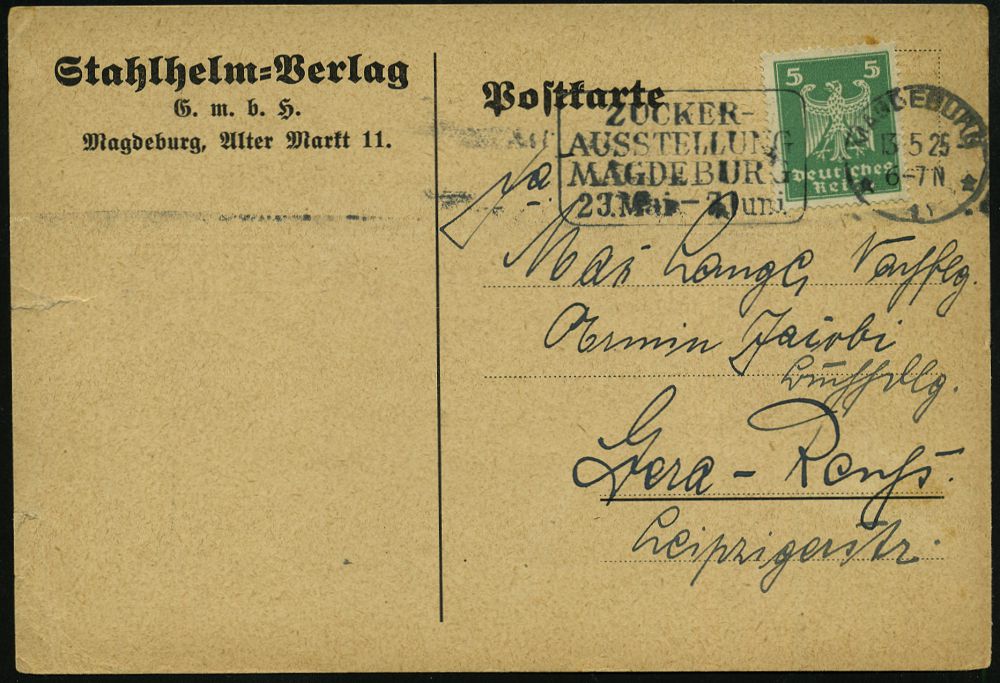 Stahlhelm-Verlag
G. m. b. H.
Magdeburg, Alter Markt 11.
Postkarte
ZUCKER-
AUSSTELLUNG
MAGDEBURG
23. Mai - 7. Juni
5 5
deutsches
Reich
MAGDEBURG
13.5.25
6-7 N
Fa.
Max Lange, Nachflg.
Armin Jacobi
Buchhdlg.
Gera - Reuß.
Leipzigerstr.